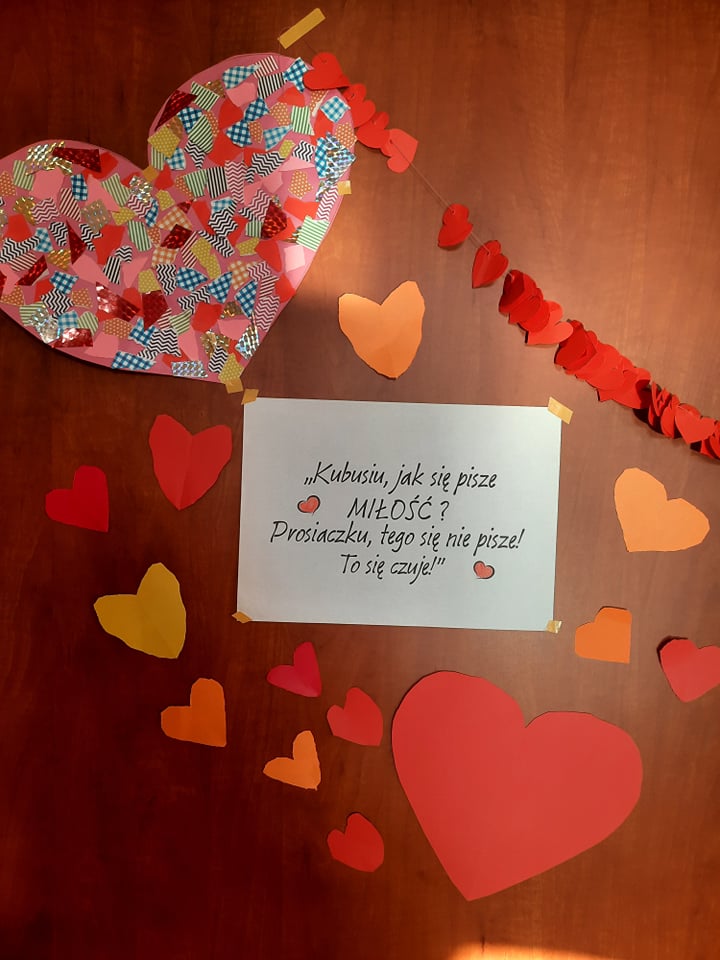 „Kubusiu, jak się pisze
MIŁOŚĆ ?
Prosiaczku, tego się nie pisze!
To się czuje!”